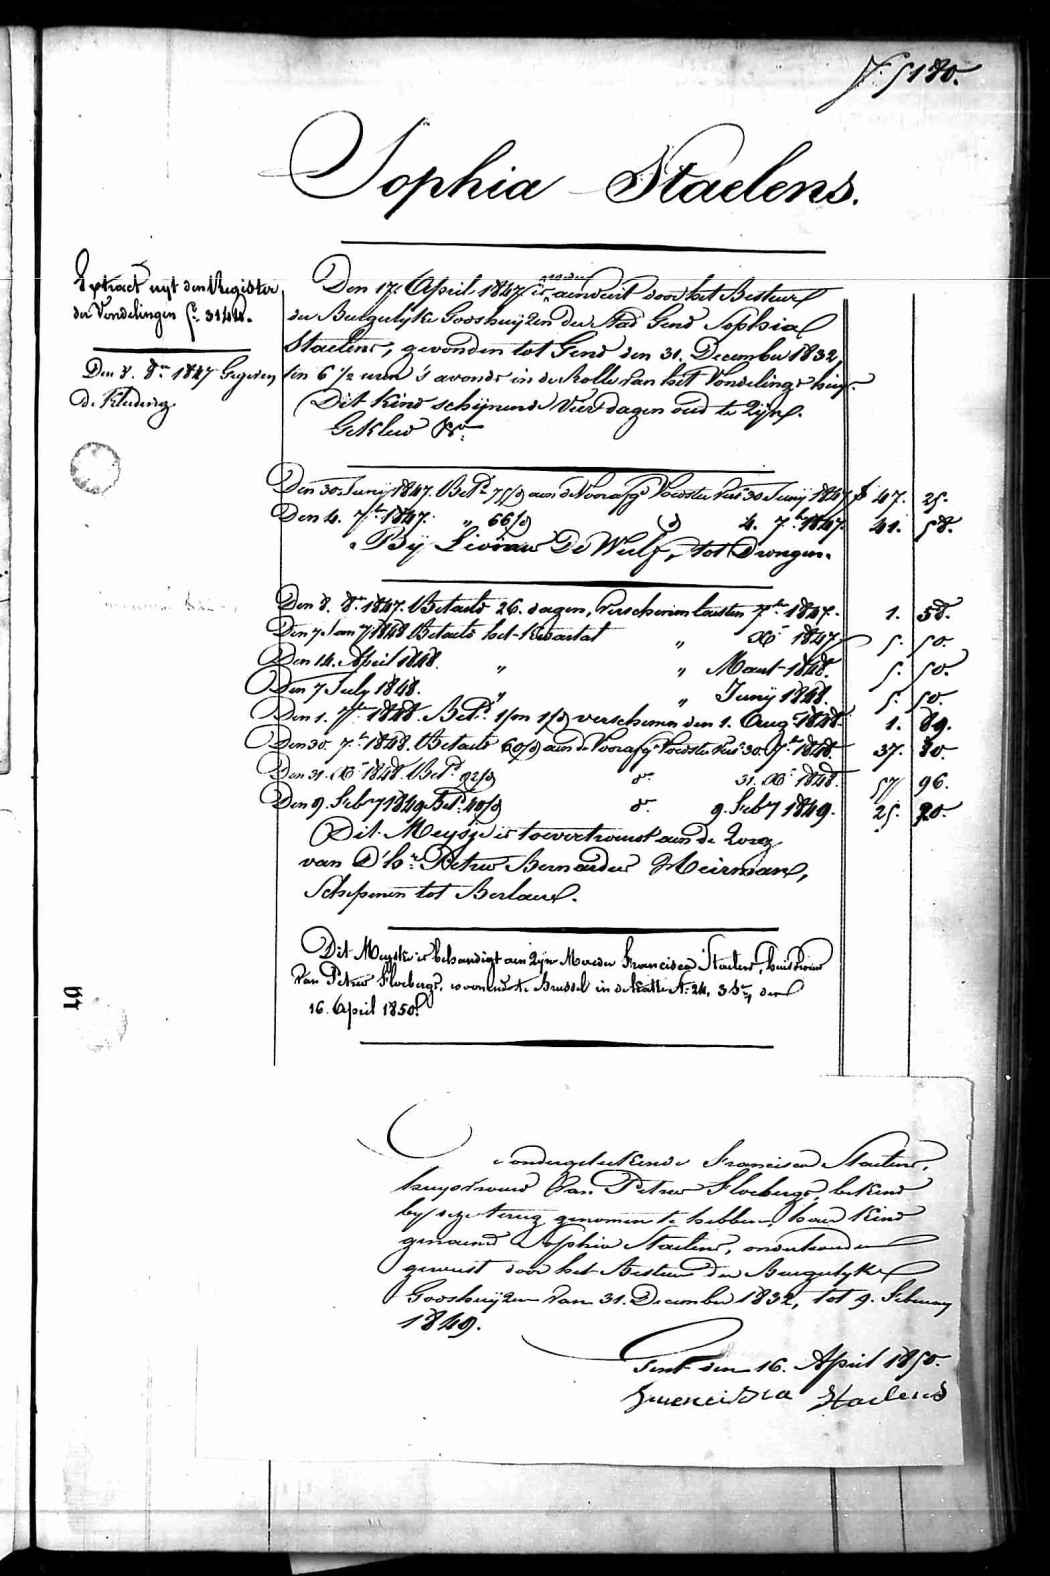 f. 5180.
Sophia Staelens.
Extract uyt den Register
der Vondelingen f.º 3144.
Den 8. 8.er 1847 Gegeven
de Kleding.
Den 17. April 1847 is aenveird door het Bestuer
der Burgerlyke Godshuijzen der Stad Gend Sophia
Staelens, gevonden tot Gend den 31. December 1832,
ten 6 1/2 uren 's avonds in de Rolle van het Vondelings huis.
Dit Kind schijnende Vier dagen oud te zijn.
Gekleed &.a
Den 30. Junij 1847. Bet.d 75/d aen de Voorafg.e Voedster tus 30 Junij 1847 f 47. 25.
Den 4. 7.ber 1847. " 66/d d.o 4. 7.ber 1847. 41. 58.
Bij Livinus De Wulf, tot Drongen.
Den 8. 8.er 1847. Betaeld 26. dagen, verschenen laesten 7.ber 1847. 1. 58.
Den 7. Jan.y 1848 Betaeld het Kwartal " X.er 1847 5. 50.
Den 14. April 1848. " " Maert 1848. 5. 50.
Den 7 July 1848. " " Junij 1848. 5. 50.
Den 1. 7.ber 1848. Bet.d 1/m 1/d verschenen den 1. Aug. 1848. 1. 89.
Den 30. 7.ber 1848. Betaeld 60/d aen de Voorafg.e Voedster tus 30. 7.ber 1848. 37. 80.
Den 31. X.er 1848. Bet.d 92/d d.o 31. X.er 1848. 57. 96.
Den 9. Feb.y 1849 Bet.d 40/d d.o 9. Feb.y 1849. 25. 20.
Dit Meysje is toevertrouwt aen de Zorg
van D'h.r Petrus Bernardus Heirman,
Schepenen tot Berlaere.
Dit Meyske is behandigt aen zijn Moeder Francisca Staelens, huisvrouw
van Petrus Floebergs, woonende te Brussel in de N.º 24, 3 S.en, den
16. April 1850.
61
ondergeteekende Francisca Staelens,
huysvrouw van Petrus Floebergs, bekend
by deze terug genomen te hebben, haer Kind
genaemd Sophia Staelens, onderhouden
geweest door het Bestuer der Burgerlyke
Godshuijzen van 31. December 1832, tot 9. February
1849.
Gent den 16. April 1850.
Francisca Staelens